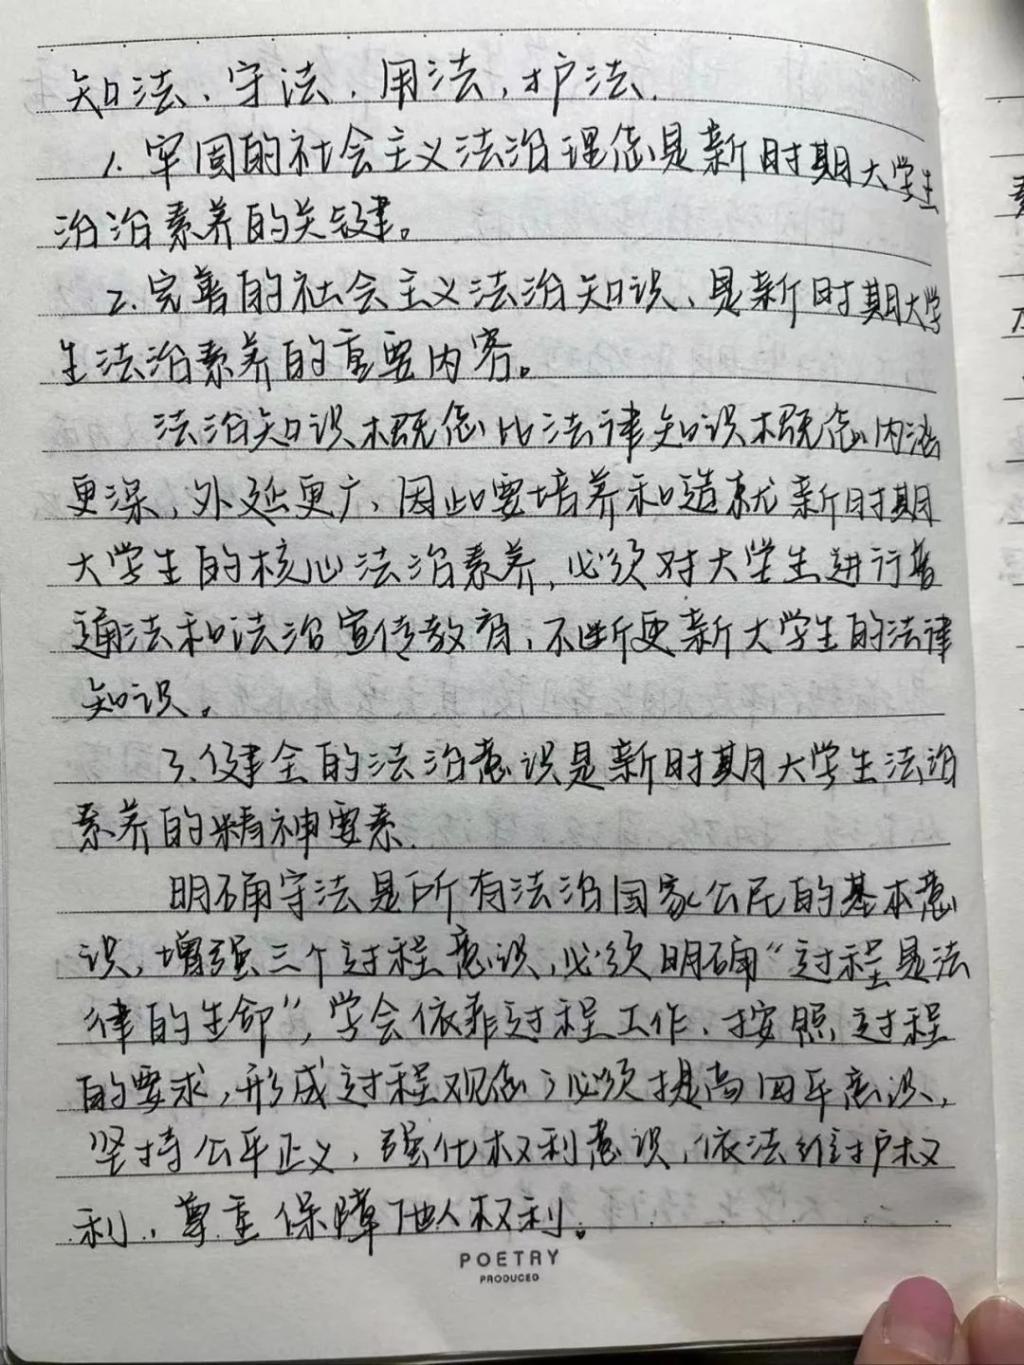 知法、守法、用法、护法.
1.牢固的社会主义法治理念是新时期大学生
治治素养的关键。
2.完善的社会主义法治知识、是新时期大学
生法治素养的重要内容。
法治知识概念比法律知识概念内涵
更深,外延更广,因此要培养和造就新时期
大学生的核心法治素养,必须对大学生进行普
通法和法治宣传教育,不断更新大学生的法律
知识。
3.健全的法治意识是新时期大学生法治
素养的精神要素.
明确守法是所有法治国家公民的基本意
识,增强三个过程意识,必须明确“过程是法
律的生命”,学会依靠过程工作、按照过程
的要求,形成过程观念;必须提高四平意识,
坚持公平正义,强化权利意识,依法维护权
利、尊重保障他人权利。
POETRY
PRODUCED